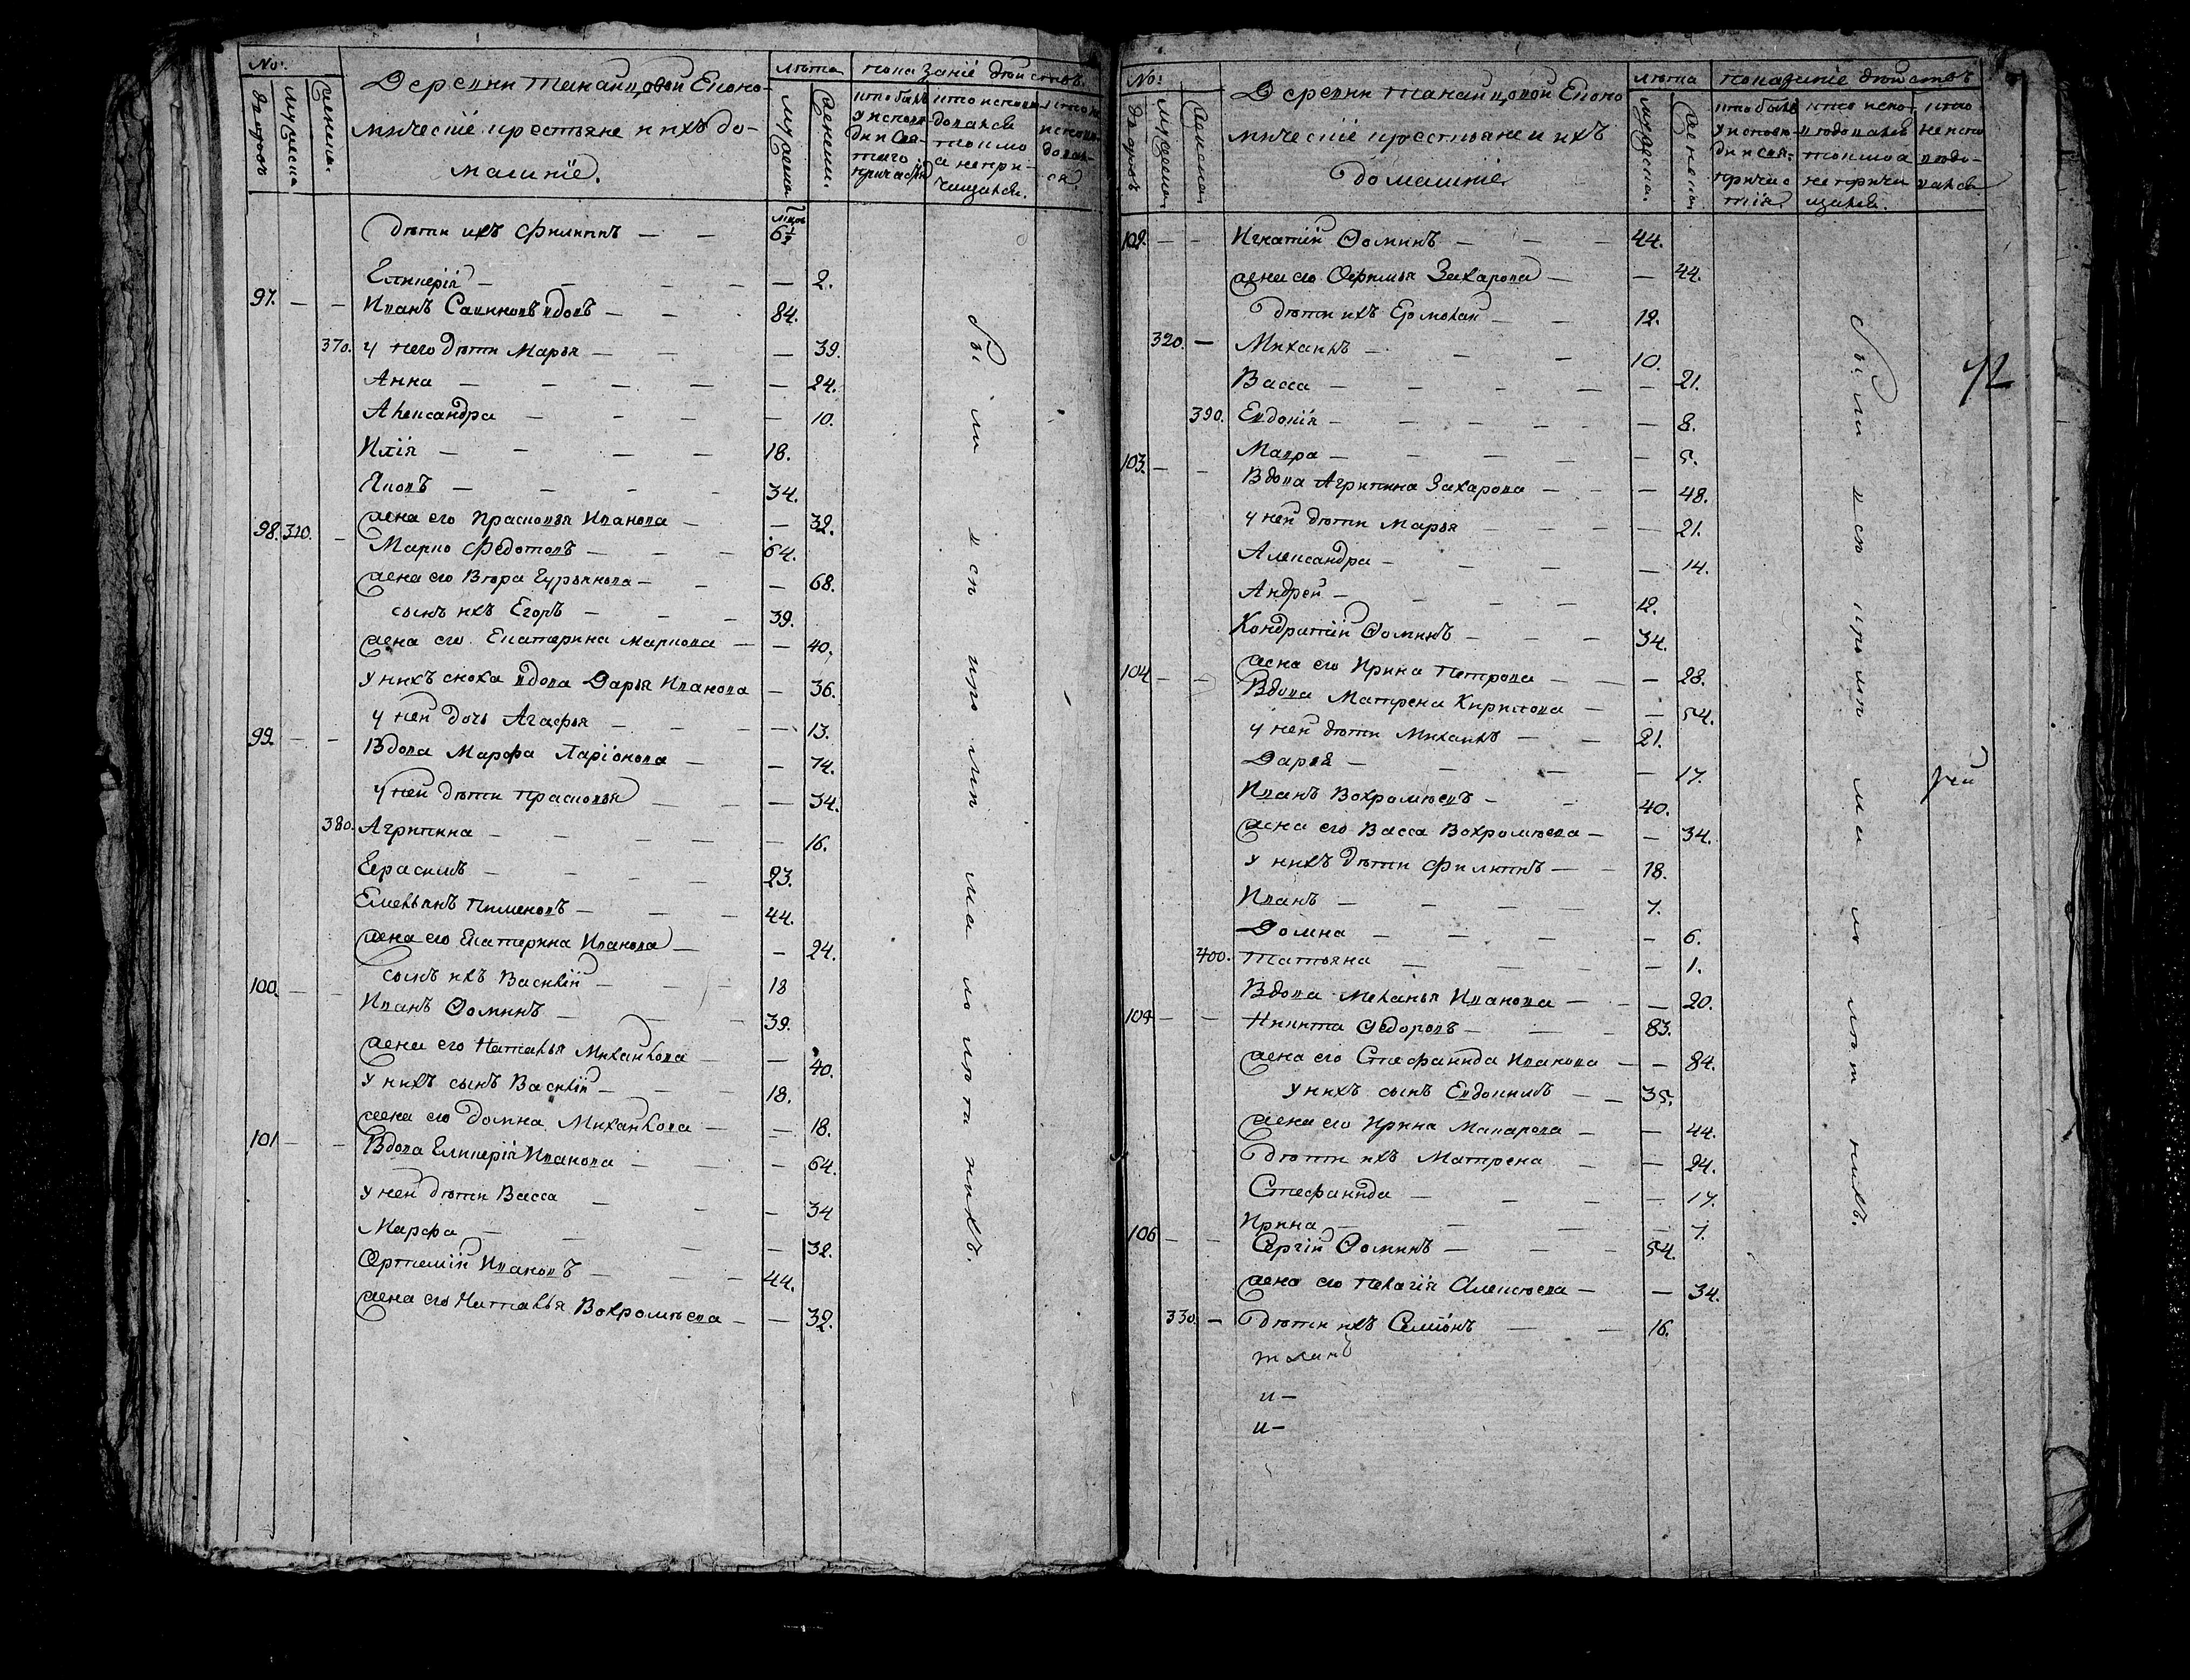 No:
дворовъ
мужеска
женска.
Деревни Танайцовой Еконо-
мическіе крестьяне и ихъ до-
машніе.
лѣта
мужеска
женска.
показаніе дѣйствъ.
кто былъ у исповѣди и святаго причастія
кто исповѣдовался токмо а не причащался.
кто не исповѣдовался
дѣти ихъ Филиппъ — — 6½
Гликерія — — — — — 2.
97. — — Иванъ Савиновъ вдовъ — — 84.
370. у него дѣти Марья — — — 39.
Анна — — — — — 24.
Александра — — — — 10.
Илія — — — — 18.
Яковъ — — — — 34.
жена его Прасковья Иванова — — 32.
98. 310. — Марко Федотовъ — — — 64.
жена его Вѣра Гурьянова — — — 68.
сынъ ихъ Егоръ — — — 39.
жена его Екатерина Маркова — — 40.
у нихъ сноха вдова Дарья Иванова — 36.
у ней дочь Агафья — — — — 13.
99. — — Вдова Марфа Ларіонова — — 74.
у ней дѣти Прасковья — — — 34.
380. Агрипина — — — — — 16.
Герасимъ — — — — 23.
Емельянъ Пименовъ — — — 44.
жена его Екатерина Иванова — — 24.
сынъ ихъ Василій — — — 18
100. — — Иванъ Ѳоминъ — — — 39.
жена его Наталья Михайлова — — 40.
у нихъ сынъ Василій — — — 18.
жена его Домна Михайлова — — 18.
101 — — Вдова Гликерія Иванова — — — 64.
у ней дѣти Васса — — — 34
Марфа — — — — 32.
Ортемій Ивановъ — — — 44.
жена его Наталья Вохромѣева — — 32.
Были всѣ кромѣ малолѣтнихъ.
No:
дворовъ
мужеска
женска
Деревни Танайцовой Еконо
мическіе крестьяне и ихъ
домашніе.
лѣта
мужеска.
женска
показаніе дѣйствъ
кто былъ у исповѣди и свя. причастія.
кто исповѣдовался токмо а не причащался.
кто не исповѣдовался
12
102. — — Игнатій Ѳоминъ — — — 44.
жена его Офимья Захарова — — 44.
дѣти ихъ Ермолай — — 12.
320. — Михаилъ — — — 10.
Васса — — — — — 21.
390. Евдокія — — — — — 8.
Мавра — — — — — 5.
103. — — Вдова Агрипина Захарова — — — 48.
у ней дѣти Марья — — — — 21.
Александра — — — — 14.
Андрей — — — — 12.
Кондратій Ѳоминъ — — — 34.
жена его Ирина Петрова — — — 28.
104 — — Вдова Матрена Кирилова — — 54.
у ней дѣти Михаилъ — — 21.
Дарья — — — — 17.
Иванъ Вохромѣевъ — — 40.
жена его Васса Вохромѣева — — 34.
у нихъ дѣти Филиппъ — — 18.
Иванъ — — — — 7.
Домна — — — — 6.
400. Татьяна — — — — 1.
Вдова Меланья Иванова — — — 20.
104 — — Никита Ѳедоровъ — — — 83.
жена его Стефанида Иванова — — 84.
у нихъ сынъ Евдокимъ — — 35.
жена его Ирина Макарова — — 44.
дѣти ихъ Матрена — — 24.
Стефанида — — — — 17.
Ирина — — — — 7.
106 — — Сергій Ѳоминъ — — — 54.
жена его Пелагія Алексѣева — — 34.
330. — дѣти ихъ Семіонъ — — 16.
и —
и —
Были всѣ кромѣ малолѣтнихъ.